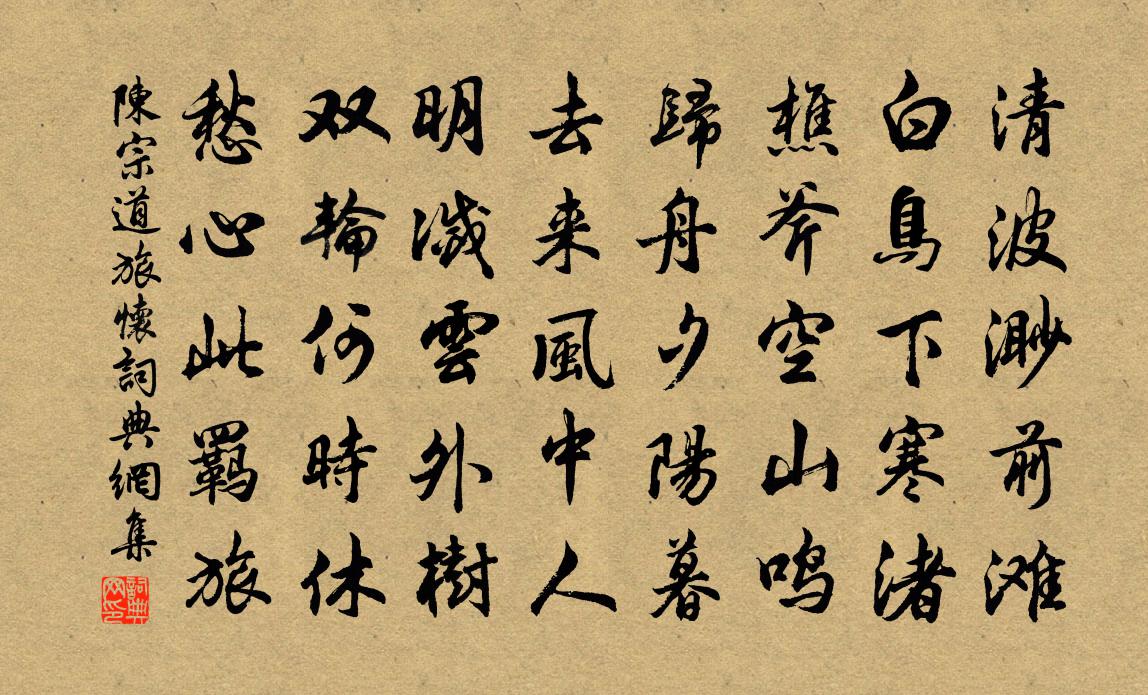 清波渺前滩
白鳥下寒渚
樵斧空山鸣
歸舟夕陽暮
去来風中人
明滅雲外樹
双輪何時休
愁心此羈旅
陳宗道旅懷詞典網集
詞典网印